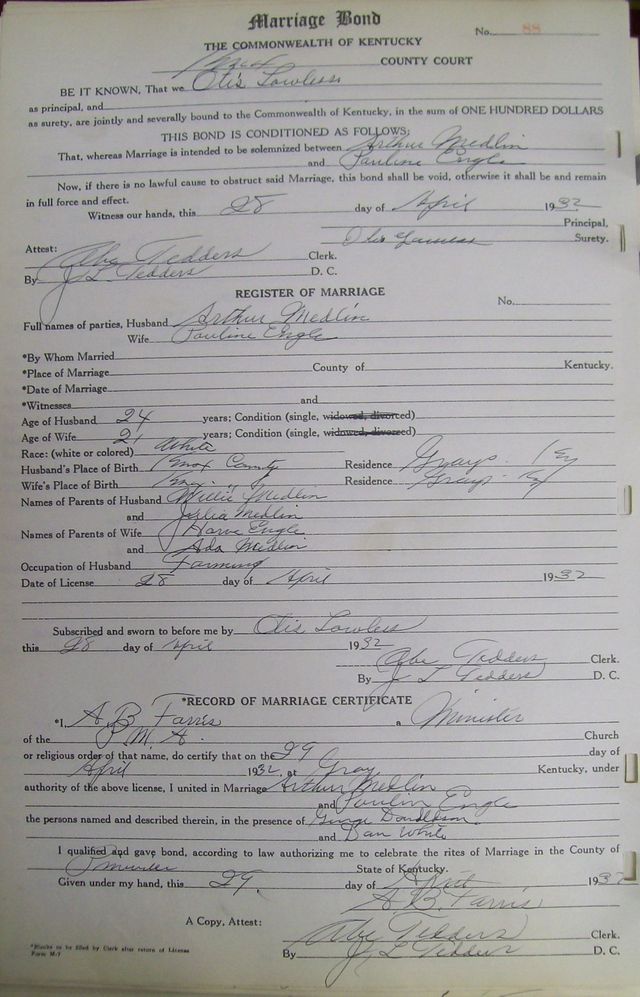 Marriage Bond
No. 88
THE COMMONWEALTH OF KENTUCKY
Knox COUNTY COURT
BE IT KNOWN, That we Otis Lawless
as principal, and
as surety, are jointly and severally bound to the Commonwealth of Kentucky, in the sum of ONE HUNDRED DOLLARS
THIS BOND IS CONDITIONED AS FOLLOWS:
That, whereas Marriage is intended to be solemnized between Arthur Medlin
and Pauline Engle
Now, if there is no lawful cause to obstruct said Marriage, this bond shall be void, otherwise it shall be and remain
in full force and effect.
Witness our hands, this 28 day of April 1932
Principal,
Otis Lawless Surety.
Attest:
Abe Tedders Clerk.
By J L Tedders D. C.
REGISTER OF MARRIAGE
No.
Full names of parties, Husband Arthur Medlin
Wife Pauline Engle
*By Whom Married
*Place of Marriage County of Kentucky.
*Date of Marriage
*Witnesses and
Age of Husband 24 years; Condition (single, widowed, divorced)
Age of Wife 21 years; Condition (single, widowed, divorced)
Race: (white or colored) White
Husband's Place of Birth Knox County Residence Grays Ky
Wife's Place of Birth Residence Grays Ky
Names of Parents of Husband Willie Medlin
and Julia Medlin
Names of Parents of Wife Harve Engle
and Ada Medlin
Occupation of Husband Farming
Date of License 28 day of April 1932
Subscribed and sworn to before me by Otis Lawless
this 28 day of April 1932
Abe Tedders Clerk.
By J L Tedders D. C.
*RECORD OF MARRIAGE CERTIFICATE
*I, A B Farris a Minister
of the Church
or religious order of that name, do certify that on the 29 day of
April 1932, at Gray Kentucky, under
authority of the above license, I united in Marriage Arthur Medlin
and Paulin Engle
the persons named and described therein, in the presence of George Donaldson
and Dan White
I qualified and gave bond, according to law authorizing me to celebrate the rites of Marriage in the County of
State of Kentucky.
Given under my hand, this 29. day of April 1932
A. B. Farris
A Copy, Attest:
Abe Tedders Clerk.
By J L Tedders D. C.
*Blanks to be filled by Clerk after return of License
Form M-7